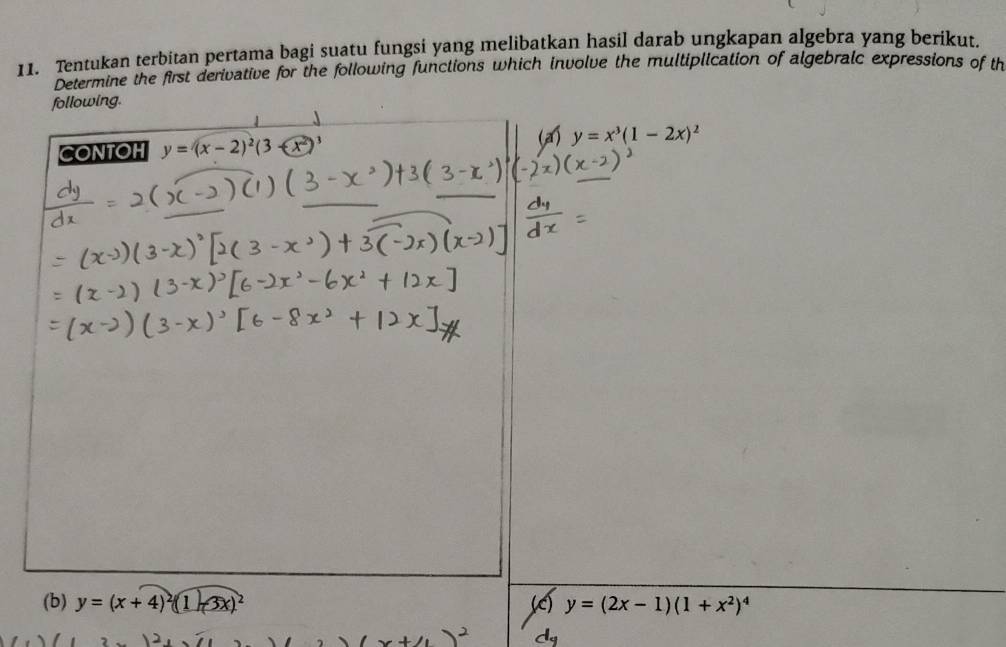 11. Tentukan terbitan pertama bagi suatu fungsi yang melibatkan hasil darab ungkapan algebra yang berikut.
Determine the first derivative for the following functions which involve the multiplication of algebraic expressions of th
following.
CONTOH y = (x − 2)²(3 − x²)³
dy/dx = 2(x-2)(1)(3-x²)+3(3-x²)²(-2x)(x-2)²
= (x-2)(3-x)²[2(3-x²)+3(-2x)(x-2)]
= (x-2)(3-x)²[6-2x²-6x²+12x]
= (x-2)(3-x)²[6-8x²+12x]#
(a) y = x³(1 − 2x)²
dy/dx =
(b) y = (x + 4)²(1 − 3x)²
(c) y = (2x − 1)(1 + x²)⁴
dy